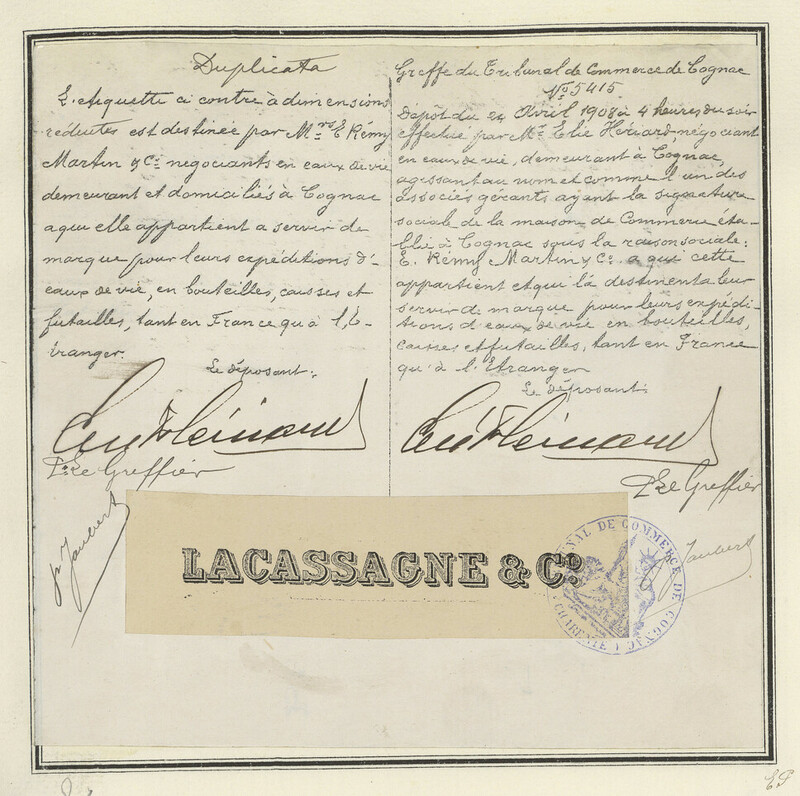 Duplicata
L'etiquette ci contre à dimensions
réduites est destinée par Mrs E Rémy
Martin & Co negociants en eaux de vie
demeurant et domiciliés à Cognac
a qui elle appartient a servir de
marque pour leurs expéditions d'
eaux de vie, en bouteilles, caisses et
futailles, tant en France qu'à l'E-
tranger.
Le déposant:
Pr Le Greffier
Jaubert
Greffe du Tribunal de Commerce de Cognac
No 5415
Dépôt du 24 Avril 1908 à 4 heures du soir
effectué par Mr Elie Hériard, négociant
en eaux de vie, demeurant à Cognac,
agissant au nom et comme l'un des
associés gérants ayant la signature
sociale de la maison de Commerce éta-
blie à Cognac sous la raison sociale:
E. Rémy Martin & Co a qui cette
appartient et qui la destinent a leur
servir de marque pour leurs expédi-
tions d'eaux de vie en bouteilles,
caisses et futailles, tant en France
qu'à l'Etranger
Le déposant:
Pr Le Greffier
Jaubert
LACASSAGNE & Co.
NAL DE COMMERCE DE COGNAC
CHARENTE